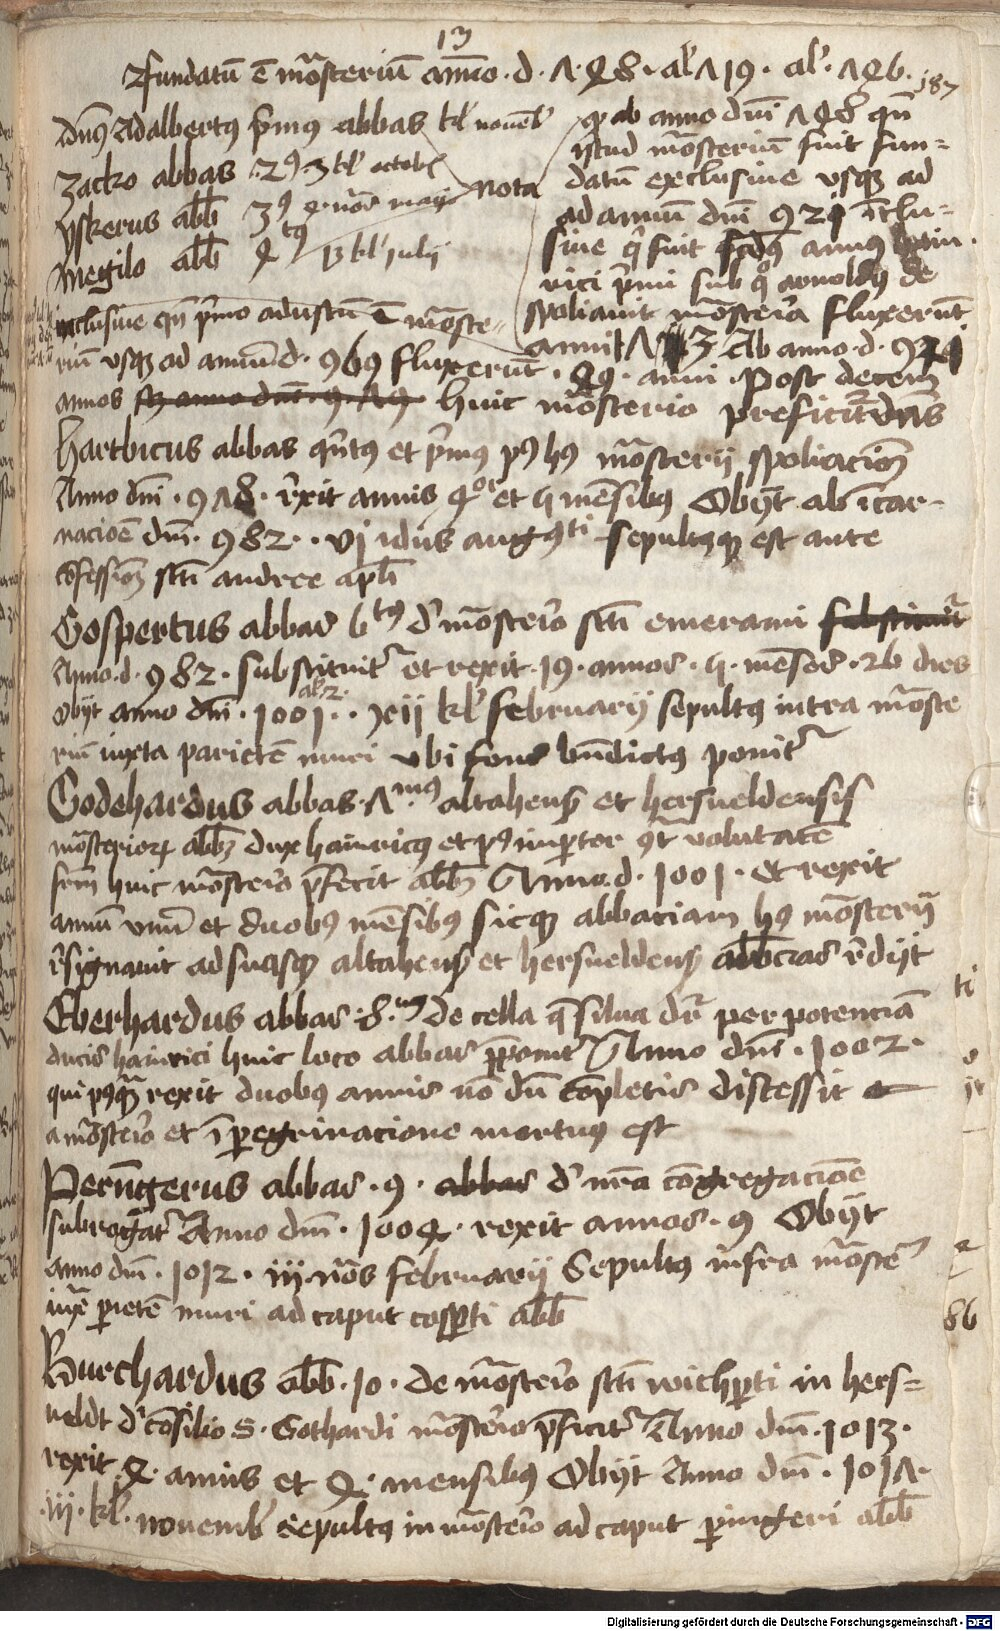 13
187
Fundatū ē mōsteriū anno . d . 748 . al' 719 . al' . 746 .
dn̄s Adalbertus p̄mus abbas kl' nouēb'
Zacko abbas . 2⁹ . 3 kl' octobr̄
yskerus abb̄ 3⁹ nōs maij
Megilo abb̄ 4tus 13 kl' iulij
Nota
qp ab anno dn̄i 748 qn̄
istud mōsteriū fuit fun=
datū exclusiue vsq ad
ad annū dn̄i 921 īclu=
siue q fuit annus hain
rici p̄mi sub q arnoldus de
spoliauit mōsteria fluxerūt
anni 173 Ab anno . d . 921
inclusiue qn̄ p̄mo adustū ē mōste=
riū vsq ad annū d . 969 fluxerūt . 49 . anni . Post decem
annos huic mōsterio preficitr dn̄s
Hartbicus abbas qn̄tus et p̄mus p⁹ h⁹ mōsterij spoliacionē
Anno dn̄i . 978 . rexit annis 4or et 5 mēsibus Obijt ab īcar-
nacioē dn̄i . 982 . . vj idus augusti sepultusq est ante
cōfessionē sct̄i andree apl̄i
Gospertus abbas 6tus d' mōsterio sct̄i emerami substituitr
Anno . d . 982 . substituitr et rexit . 19 . annos . 5 . mēses . 26 dies
obijt anno dn̄i . 1001 . al' 2 . . xij kl' februarij sepultus intra mōste
riū iuxta parietē muri vbi fons bn̄dictus ponitr
Godehardus abbas . 7mus altahens et hersueldensis
mōsteriorꝝ abb̄ dux hainricus et p⁹ imꝑator 9tr volūtatē
huic mōsterio p̄fecit abb̄ Anno . d . 1001 . Et rexit
annū vnū et duobus mēsibus sicq abbatiam h⁹ mōsterij
rsignauit ad suasq altahens et hersueldens abb̄cias rdijt
Eberhardus abbas . 8us de cella q silua dr per potenciā
ducis hainrici huic loco abbas ponitr Anno dn̄i . 1002 .
qui p⁹qͣ rexit duobus annis nō dū cōpletis discessit
a mōsterio et ī ꝑegrinacione mortuus est
Perūgerus abbas . 9 . abbas d' nr̄a cōgregacioē
subrogatr Anno dn̄i . 1004 . rexit annos . 9 Obijt
anno dn̄i . 1012 . iij nōs februarij Sepultus infra mōste
iuxͣ ꝑietē muri ad caput cosꝑti abb̄
Burchardus abb̄ . 10 . de mōsterio sct̄i wichꝑti in hers=
ueldt d' cōsilio S . Gothardi mōsterio p̄ficitr Anno dn̄i . 1013 .
rexit 4 . annis et 4 . mensibus Obijt Anno dn̄i . 1017 .
. iij . kl' . nouemb' Sepultus in mōsterio ad caput ꝑingeri abb̄
86
Digitalisierung gefördert durch die Deutsche Forschungsgemeinschaft - DFG